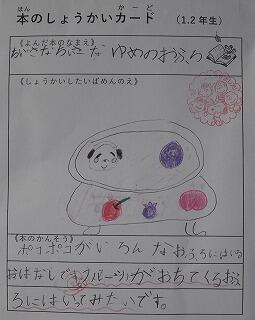 ほん
かーど
本のしょうかいカード
(1.2年生)
《よんだ本のなまえ》
ちいさなちいさな ゆめのおふろ
《しょうかいしたいばめんのえ》
《本のかんそう》
ポコポコがいろんなおふろにはいる
おはなしです。フルーツがおちてくるおふ
ろにはいってみたいです。